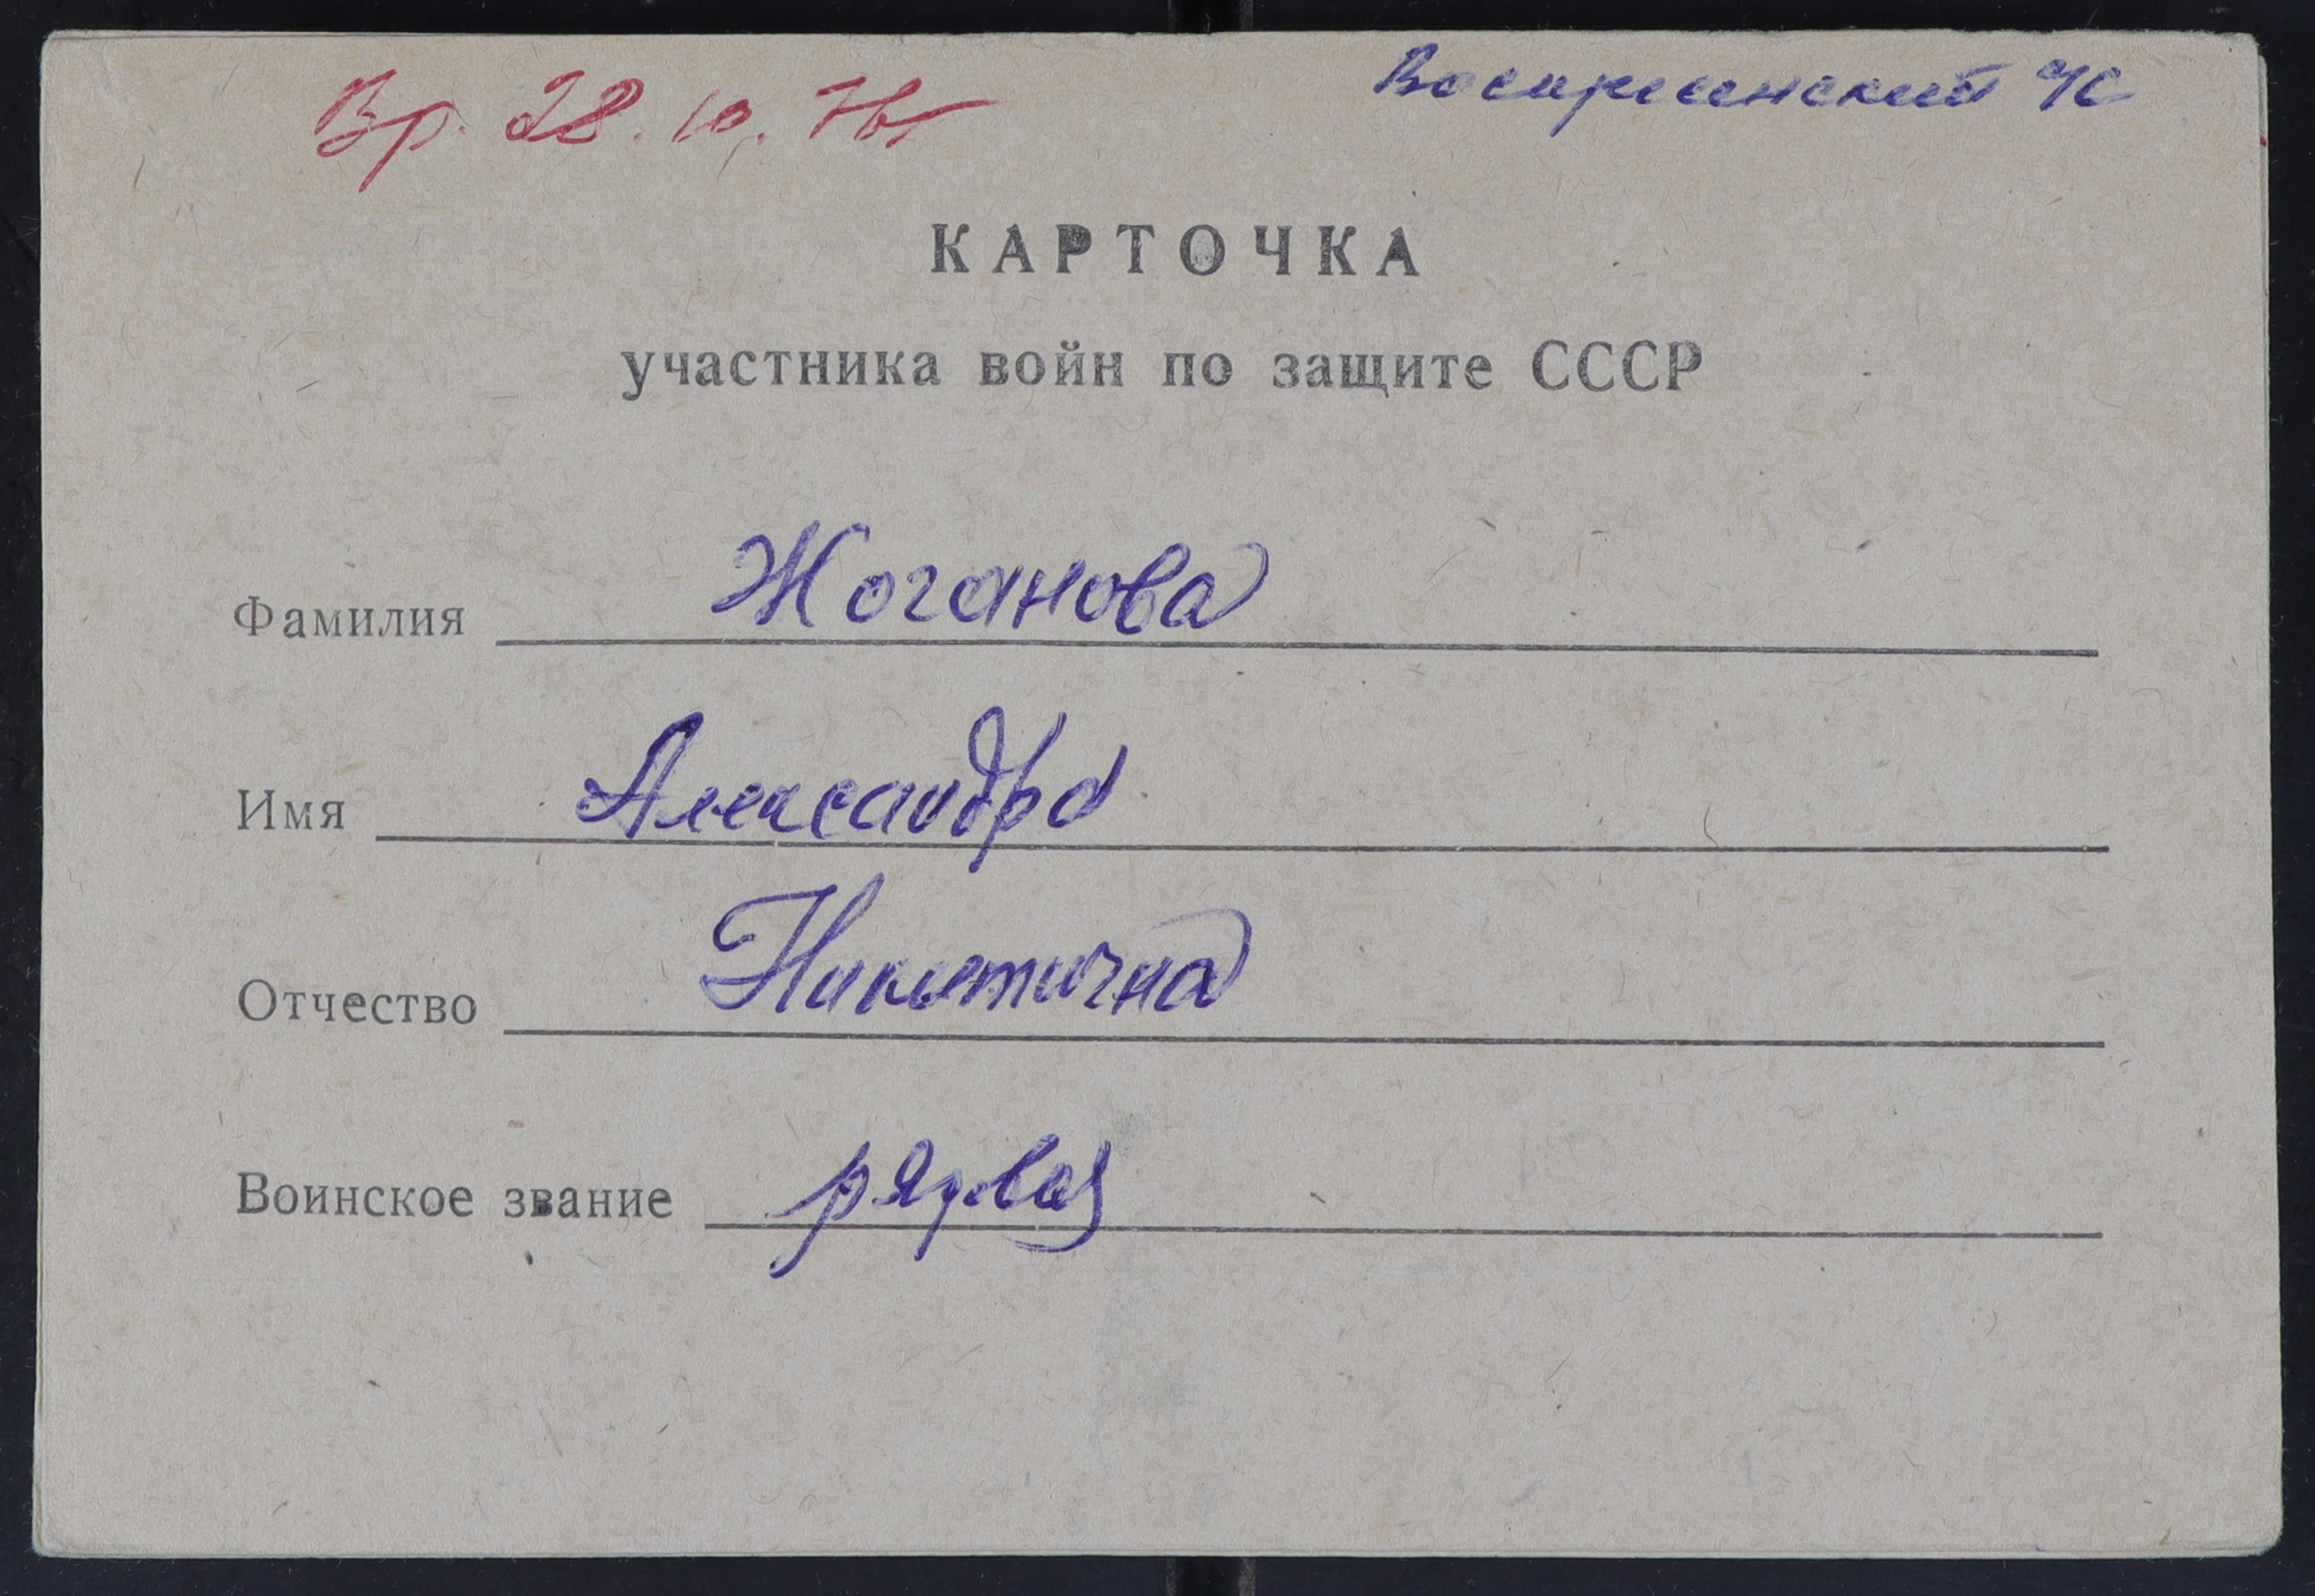 Вр. 28.10.76г
Воскресенский р/с
КАРТОЧКА
участника войн по защите СССР
Фамилия Жоганова
Имя Александра
Отчество Никитична
Воинское звание рядовая